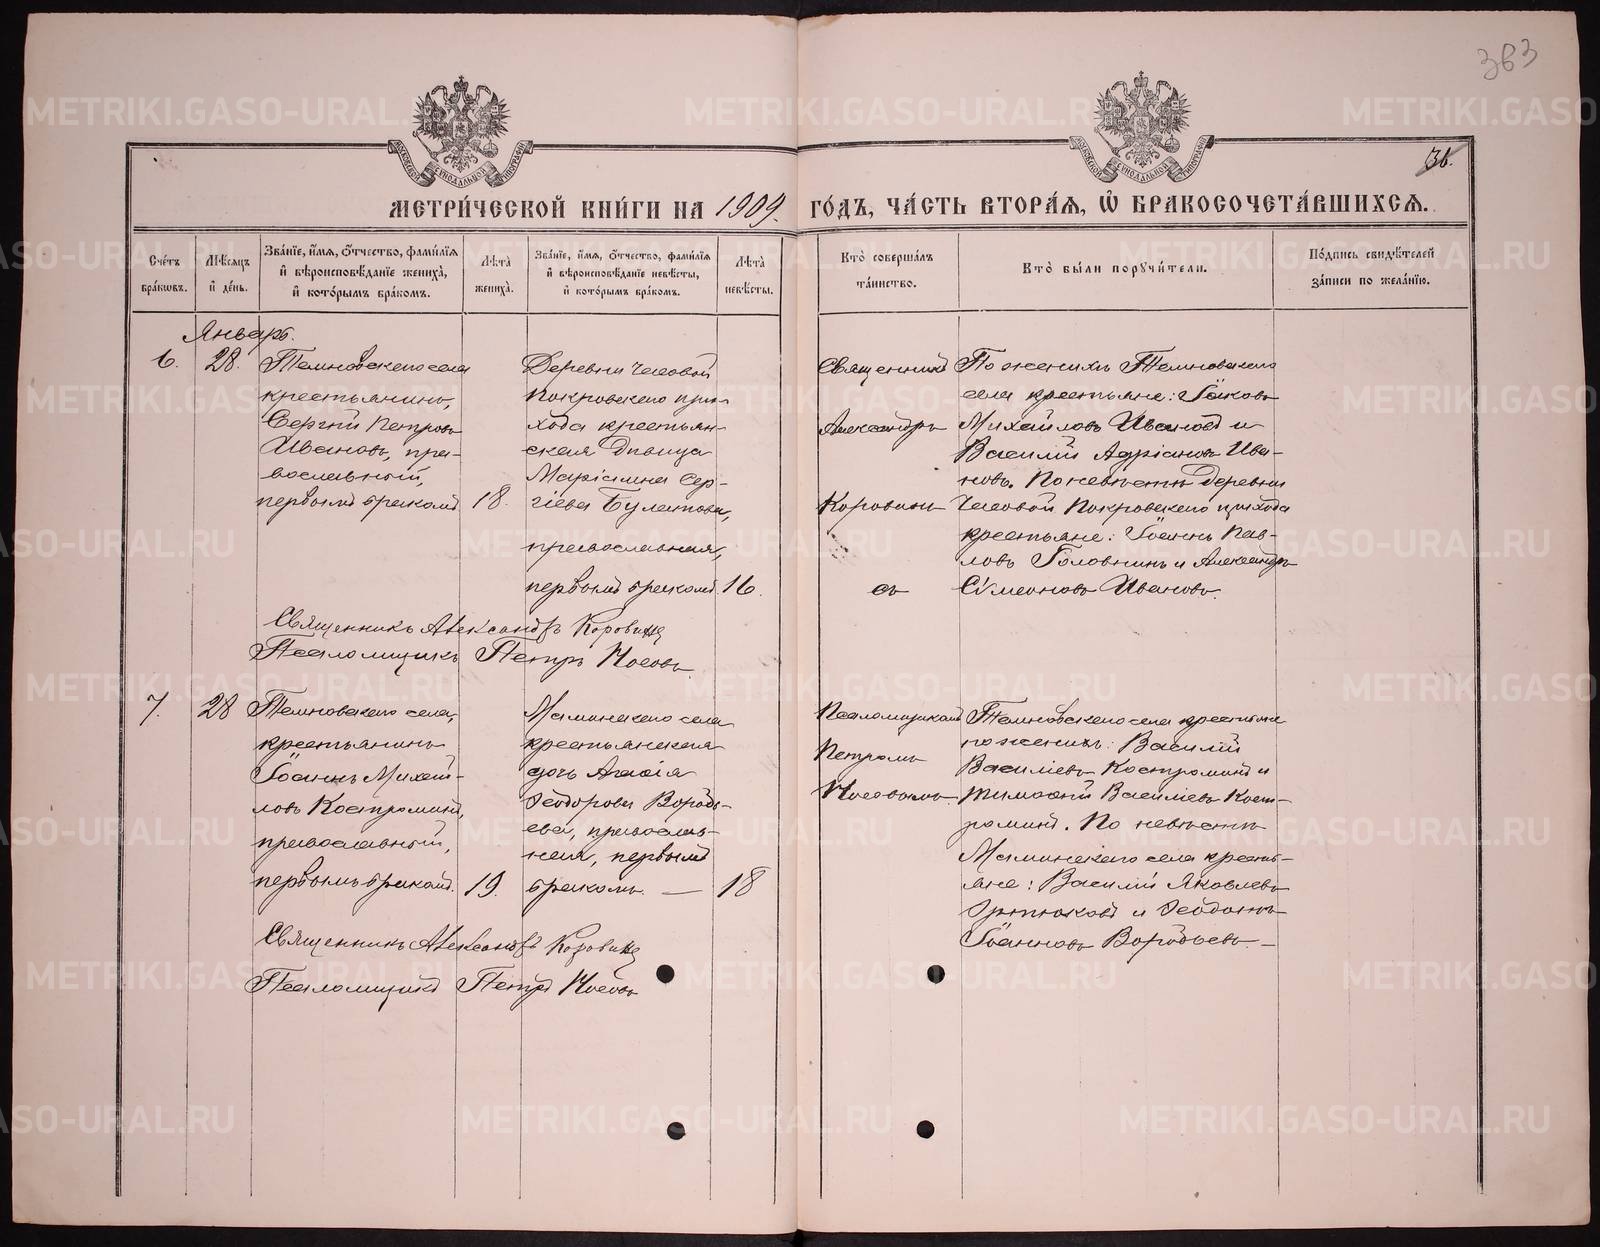 363
36.
МЕТРИ́ЧЕСКОЙ КНИ́ГИ НА 1909. ГО́ДЪ, ЧА́СТЬ ВТОРА́Я, Ѽ БРАКОСОЧЕТА́ВШИХСЯ.
Сче́тъ бра́ковъ.
Мѣ́сяцъ и҆ де́нь.
Зва́нїе, и҆́мя, ѻ҆́тчество, фами́лїя и҆ вѣроисповѣ́данїе жениха̀, и҆ кото́рымъ бра́комъ.
Лѣта̀ жениха̀.
Зва́нїе, и҆́мя, ѻ҆́тчество, фами́лїя и҆ вѣроисповѣ́данїе невѣ́сты, и҆ кото́рымъ бра́комъ.
Лѣта̀ невѣ́сты.
Кто̀ соверша́лъ та́инство.
Кто̀ бы́ли порꙋчи́тели.
По́дпись свидѣ́телей за́писи по жела́нїю.
Январь.
6.
28.
Темновскаго села
крестьянинъ,
Сергій Петровъ
Ивановъ, пра-
вославный,
первымъ бракомъ
18.
Деревни Часовой
Покровскаго при-
хода крестьян-
ская дѣвица
Маріамна Сер-
гіева Булатова,
православная,
первымъ бракомъ
16.
Священникъ
Александръ
Коровинъ
съ
По женихѣ Темновскаго
села крестьяне: Іаковъ
Михайловъ Ивановъ и
Василій Адріановъ Ива-
новъ. По невѣстѣ деревни
Часовой Покровскаго прихода
крестьяне: Іоаннъ Пав-
ловъ Головнинъ и Александръ
Симеоновъ Ивановъ.
Священникъ Александръ Коровинъ
Псаломщикъ Петръ Носовъ
7.
28
Темновскаго села,
крестьянинъ
Іоаннъ Михай-
ловъ Костроминъ,
православный,
первымъ бракомъ.
19.
Маминскаго села
крестьянская
дочь Агафія
Ѳеодорова Воробь-
ева, православ-
ная, первымъ
бракомъ. —
18
Псаломщикомъ
Петромъ
Носовымъ.
Темновскаго села крестьяне
по женихѣ: Василій
Василіевъ Костроминъ и
Тимоѳей Василіевъ Кост-
роминъ. По невѣстѣ
Маминскаго села кресть-
яне: Василій Яковлевъ
и
Іоанновъ Воробьевъ. —
Священникъ Александръ Коровинъ
Псаломщикъ Петръ Носовъ